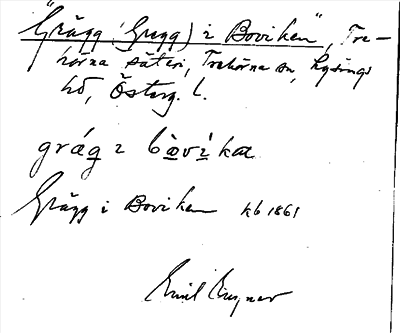 "Grägg (Gregg) i Boviken", Tre-
hörna säteri, Trehörna sn, Lysings
hd, Österg. l.
gràg i bòvìkaɶ
Grägg i Boviken kb 1861
Emil